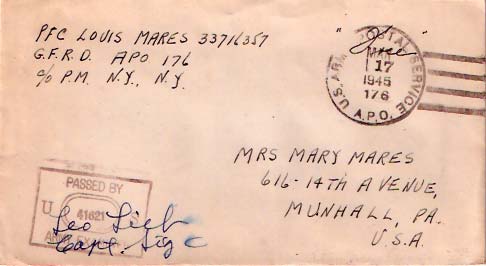 PFC LOUIS MARES 33716357
G.F.R.D. APO 176
c/o P.M. N.Y., N.Y.
"Free"
U.S. ARMY POSTAL SERVICE
MAR
17
1945
176
A.P.O.
MRS MARY MARES
616-14TH AVENUE,
MUNHALL, PA.
U.S.A.
PASSED BY
U
41621
ARMY
Leo Lieb
Capt. Sig C